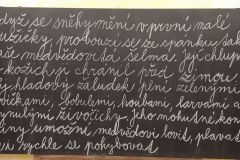 dyž se sněhymění v první malé
užičky probouzí se ze spánku tak
medvědovitá šelma. Její chlupa
kožich ji chránil před zimou.
hladový žaludek plní zelenými
vičkami, bobulemi, houbami, larvami a
ynulými živočichy. Jeho mohutné kon
činy umožní medvědovi lovit, plavat
rychle se pohybovat